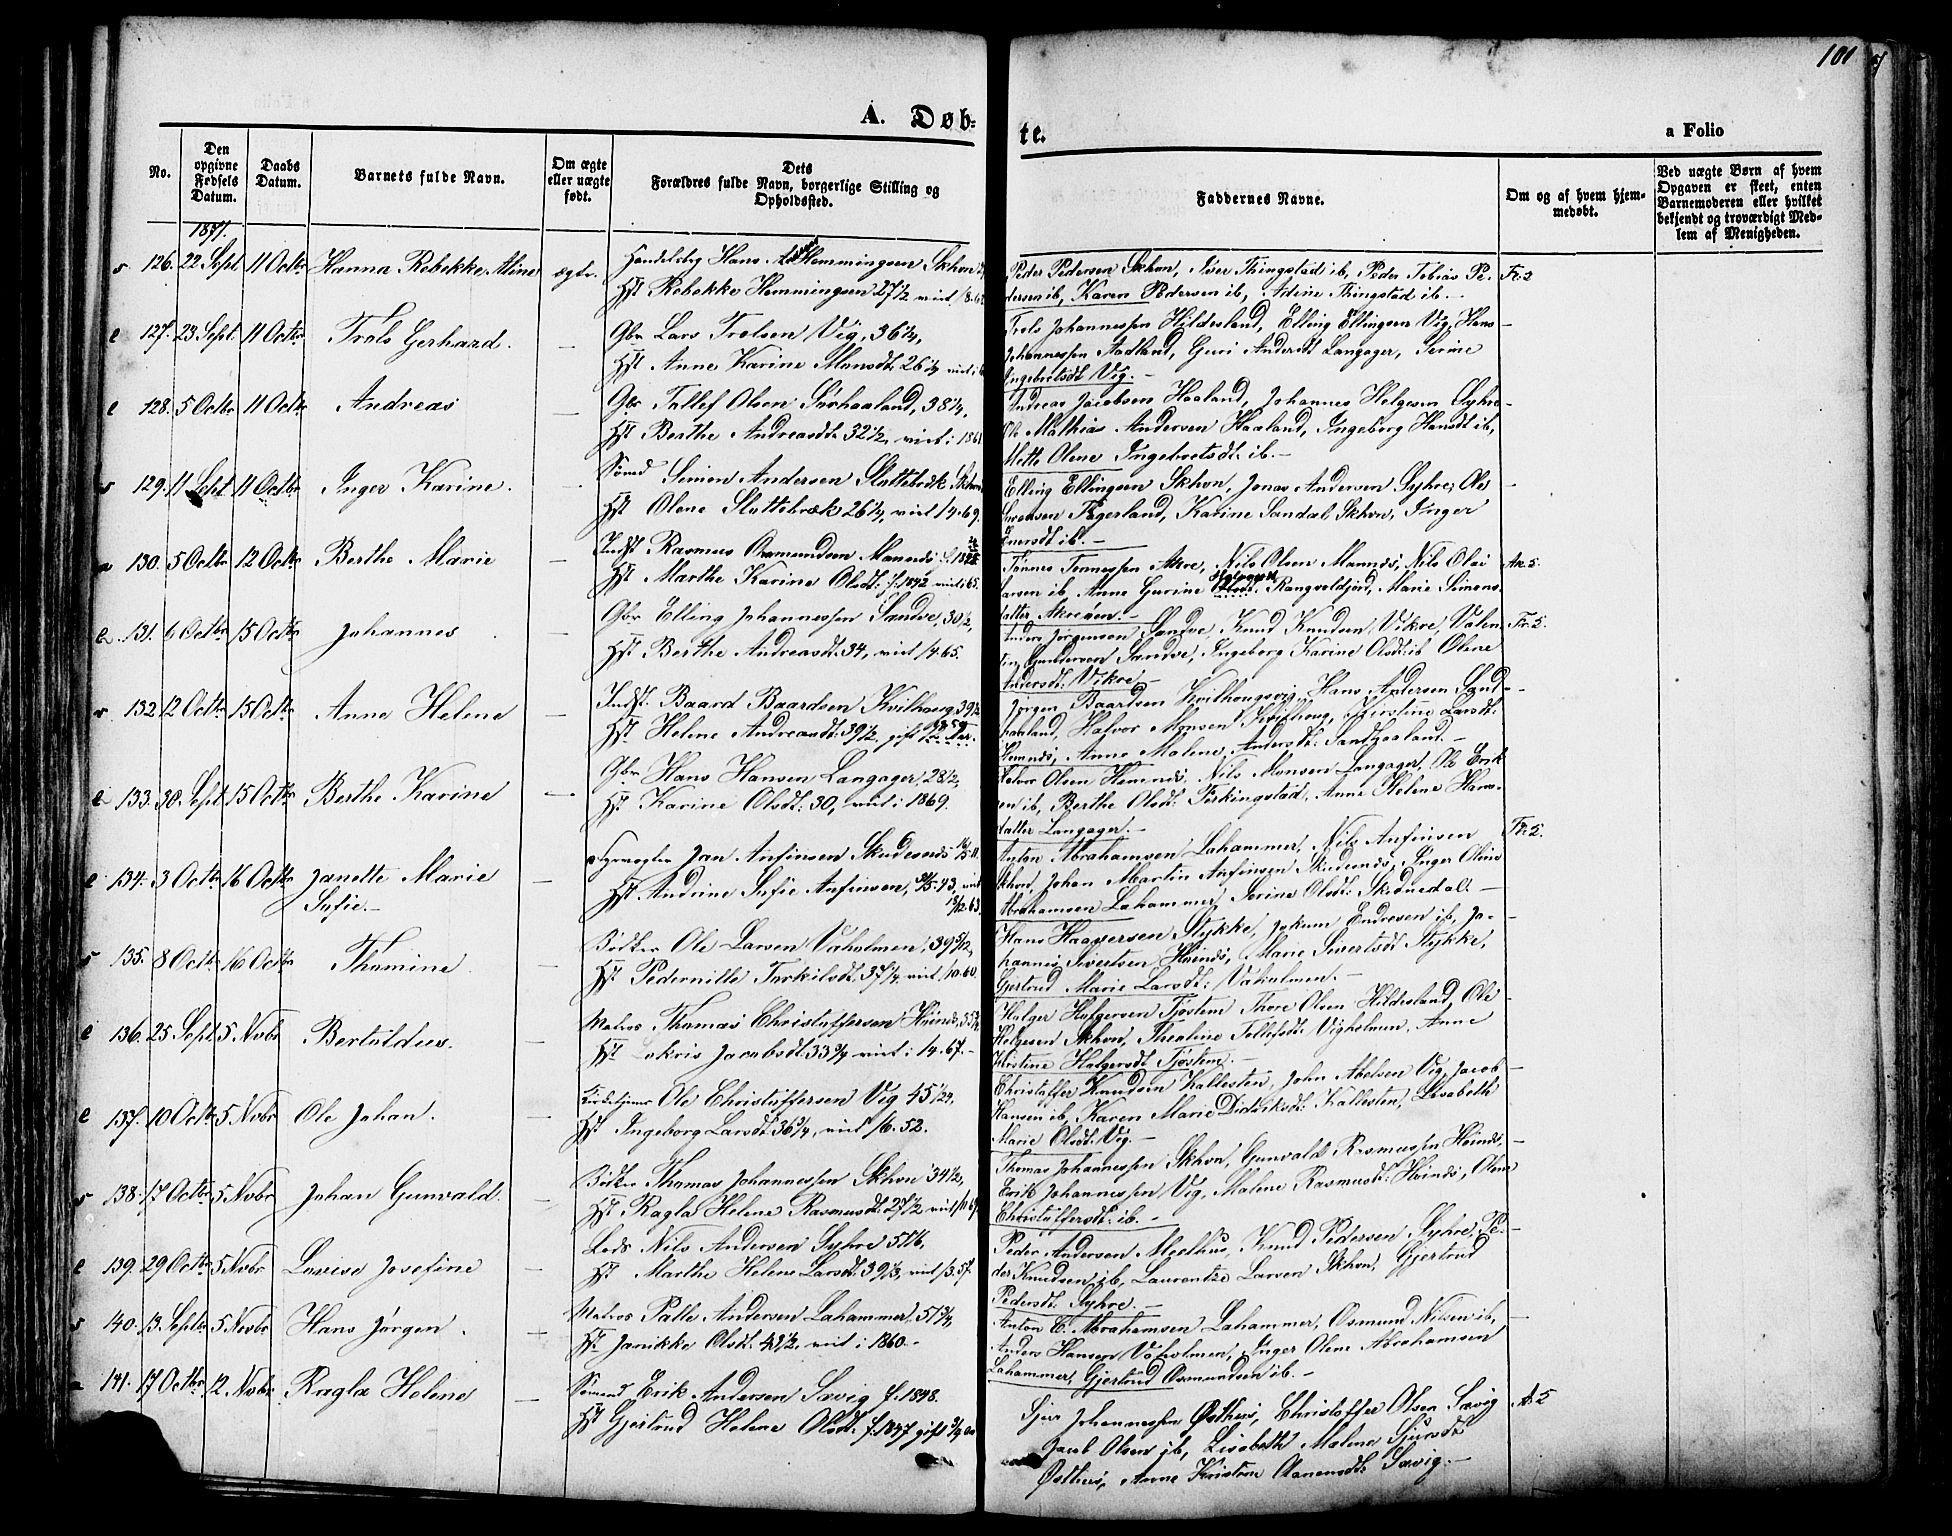 101
A. Døb-
te.
a Folio
No.
Den opgivne Fødsels Datum.
Daabs Datum.
Barnets fulde Navn.
Om ægte eller uægte født.
Dets
Forældres fulde Navn, borgerlige Stilling og
Opholdssted.
Faddernes Navne.
Om og af hvem hjem-
medøbt.
Ved uægte Børn af hvem
Opgaven er skeet, enten
Barnemoderen eller hvilket
bekjendt og troværdigt Med-
lem af Menigheden.
1871.
126. 22 Sept 11 Octbr Hanna Rebekke Aline ægte. Hans Hemmingsen Skhvn
Hst Rebekke Hemmingsen 27 1/2
Peder Pedersen Skhvn, Thingstad ib, Peder Tobias Pe-
dersen ib, Karen Pedersen ib, Adine Thingstad ib. —
127. 23 Sept. 11 Octbr Trols Gerhard. — Gbr Lars Trolsen Vig, 36 1/4,
Hst Anne Karine Monsdt. 26 1/4
Trols Johannessen Hildesland, Elling Ellingsen Vig, Hans
Johannessen Aadland, Guri Andersdt Langager, Serine
Ingebretsdt Vig. —
128. 5 Octbr 11 Octbr Andreas — Gbr Tollef Olsen Sørhaaland, 38 1/4,
Hst Berthe Andreasdt. 32 1/2, viet i 1861
Andreas Jacobsen Haaland, Johannes Helgesen Syhre
Ole Mathias Andersen Haaland, Ingeborg Hansdt ib,
Mette Olene Ingebretsdt. ib. —
129. 11 Sept 11 Octbr Inger Karine. Sømd Simon Andersen Sluttebrek Skhvn
Hst Olene Sluttebræk 26 1/4, viet 69.
Elling Ellingsen Skhvn, Jonas Andersen Syhre, Ole
Sørensen Fagerland, Karine Sandal Skhvn, Inger
130. 5 Octbr 12 Octbr Berthe Marie — Indst Rasmus Osmundsen Mannes
Hst Marthe Karine Olsdt. f. 1842 viet 65.
Tønnes Tønnessen Akre, Nils Olsen Mannes, Nils Olai
Larsen ib, Anne Gurine Rangvaldjord, Marie Simens-
datter Akreøen. —
131. 6 Octbr 15 Octbr Johannes — Gbr Elling Johannessen Sandve, 30 1/2,
Hst Berthe Andreasdt. 34, viet 65.
Anders Jørgensen Sandve, Knud Knudsen Vikre, Valen-
tin Gundersen Sandve, Ingeborg Karine Olsdt. ib Olene
Andersdt. Vikre —
132 12 Octbr 15 Octbr Anne Helene — Indst. Baard Baardsen Kvilhaug 39 1/2
Hst Helene Andreasdt. 39 1/2, gift
Jørgen Baardsen Kvilhaugsvig, Hans Andersen Sand-
haaland, Halvor Monsen Kvilhaug, Kirstine Larsdt.
Hemnes, Anne Malene Andersdt. Sandhaaland. —
133. 30. Sept. 15 Octbr Berthe Karine — Gbr Hans Hansen Langager, 28 1/2,
Hst Karine Olsdt. 30, viet i 1869.
Halvor Olsen Hemnes, Nils Monsen Langager, Ole Erik-
sen ib, Berthe Olsdt. Ferkingstad, Anne Helene Hans-
datter Langager. —
134. 3 Octbr 16 Octbr Janette Marie — Fyrvogter Jan Anfinsen Skudesnes
Sofie. — Hst Andrine Sofie Anfinsen, viet 63
Anton Abrahamsen Lahammer, Nils Anfinsen
Skhvn, Johan Martin Anfinsen Skudesnes, Inger Oline
Abrahamsen Lahammer, Serine Olsdt. —
135. 8 Octbr 16 Octbr Thomine — Bødker Ole Larsen Vaholmen, 39 5/12,
Hst Pedernille Torkilsdt. 37 1/4, viet 60.
Hans Haaversen Stykke, Jokum Endresen ib, Jo-
hannes Sivertsen Høines, Marie Sivertsdt Stykke,
Gjertrud Marie Larsdt. Vaholmen. —
136. 25 Sept. 5 Novbr Bertoldus. — Matros Thomas Christoffersen Høines,
Hst Lokris Jacobsdt. 33 3/4 viet i 67. —
Holger Holgersen Tjøstem Thore Olsen Hildesland, Ole
Helgesen Skhvn, Threaline Tollefsdt. Vigholmen, Anne
Kirstine Holgersdt. Tjøstem. —
137. 10 Octbr 5 Novbr Ole Johan. — Ole Christoffersen Vig 45 1/24,
Hst Ingeborg Larsdt. 36 3/4, viet /6. 52.
Christoffer Knudsen Kallesten, John Abelsen Vig, Jacob
Hansen ib, Karen Marie Didriksdt. Kallesten, Lisabeth
Marie Olsdt. Vig. —
138. 17 Octbr 5 Novbr Johan Gunvald. — Bødker Thomas Johannessen Skhvn 34 1/2,
Hst Ragla Helene Rasmusdt. 27 1/2
Thomas Johannessen Skhvn, Gunvald Rasmussen Høines,
Erik Johannessen Vig, Malene Rasmusdt. Høines, Olene
Christoffersdt. ib. —
139. 29 Octbr 5 Novbr Lovise Josefine — Lods Nils Andersen Syhre 51 1/6,
Hst Marthe Helene Larsdt. 39 1/3, viet /3. 57.
Peder Andersen Meelhus, Knud Pedersen Syhre, Pe-
der Knudsen ib, Laurentze Larsen Skhvn, Gjertrud
Pedersdt. Syhre. —
140. 13. Septbr 5 Novbr Hans Jørgen. — Matros Palle Andersen Lahammer. 51 3/4
Hst. Janikke Olsdt. 42 1/2, viet i 1860. —
Anton C. Abrahamsen Lahammer, Osmund Nilsen ib,
Anders Hansen Vaholmen, Inger Olene Abrahamsen
Lahammer, Gjertrud Osmundsen ib. —
141. 17 Octbr. 12. Novbr Ragla Helene — Sømand Erik Andersen Sævig f. 1848.
Hst Gjertrud Helene Olsdt. f. 1847 gift
Sjur Johannessen Østhus, Christoffer Olsen Sævig
Jacob Olsen ib, Lisabeth Malene Sjursdt
Østhus, Anne Kristine Sævig. —